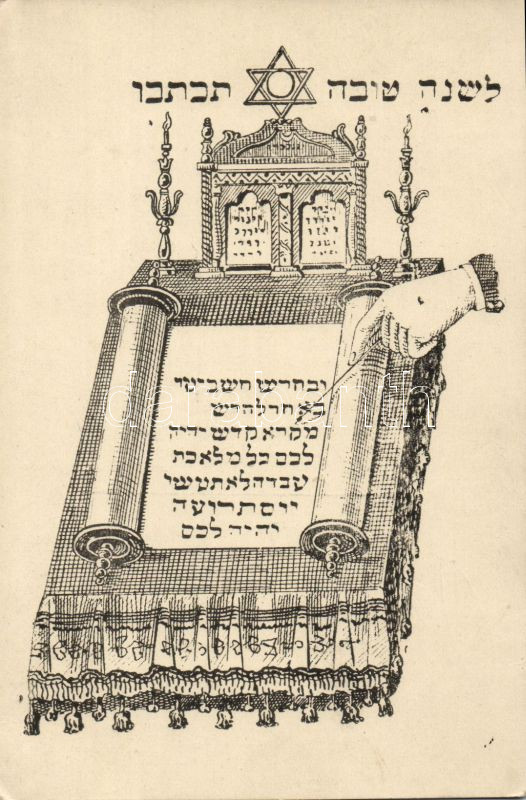 לשנה טובה תכתבו
ובחדש חשביעי
באחד לחדש
מקרא קדש יהיה
לכם כל מלאכת
עבדה לא תעשו
יום תרועה
יהיה לכם